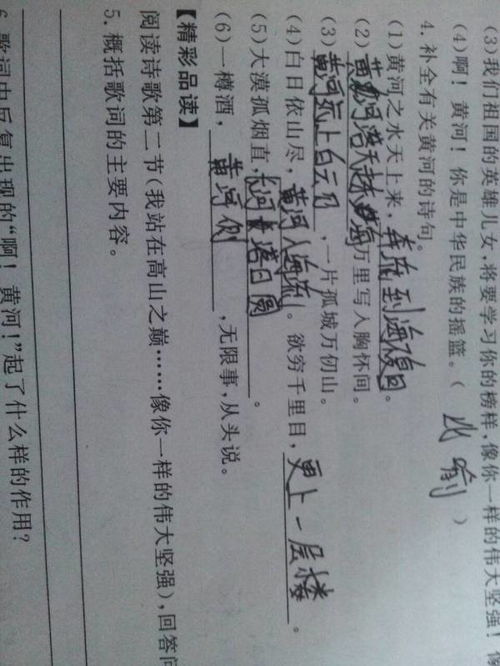 (3)我们祖国的英雄儿女,将要学习你的榜样,像你一样的伟大坚强!像
(4)啊!黄河!你是中华民族的摇篮。( 比喻 )
4. 补全有关黄河的诗句。
(1)黄河之水天上来,奔流到海复回。
(2)黄河落天走 海万里写入胸怀间。
(3)黄河远上白云间,一片孤城万仞山。
(4)白日依山尽,黄河入海流。欲穷千里目,更上一层楼。
(5)大漠孤烟直,长河 落日圆。
(6)一樽酒,黄河侧,无限事,从头说。
【精彩品读】
阅读诗歌第二节(我站在高山之巅……像你一样的伟大坚强),回答问
5. 概括歌词的主要内容。
6. 歌词中反复出现的“啊!黄河!”起了什么样的作用?